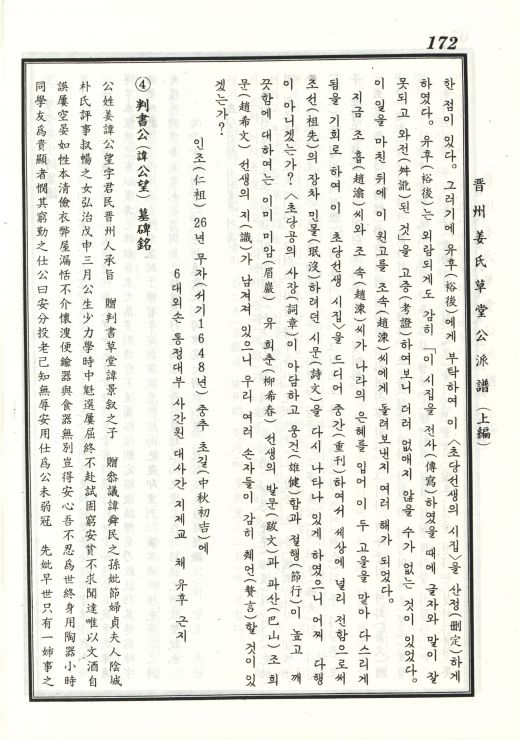 172
晋州姜氏草堂公派譜 (上編)
한 점이 있다. 그러기에 유후(裕後)에게 부탁하여 이 〈초당선생의 시집〉을 산정(刪定)하게
하였다. 유후(裕後)는 외람되게도 감히 「이 시집을 전사(傳寫)하였을 때에 글자와 말이 잘
못되고 와전(舛訛)된 것」을 고증(考證)하여보니 더러 없애지 않을 수가 없는 것이 있었다.
이 일을 마친 뒤에 이 원고를 조속(趙涑)씨에게 돌려보낸지 여러 해가 되었다.
지금 조흡(趙潝)씨와 조속(趙涑)씨가 나라의 은혜를 입어 이 두 고을을 맡아 다스리게
됨을 기회로 하여 이 초당선생 시집〉을 드디어 중간(重刊)하여서 세상에 널리 전함으로써
조선(祖先)의 장차 민몰(泯沒)하려던 시문(詩文)을 다시 나타나 있게 하였으니 어찌 다행
이 아니겠는가? 〈초당공의 사장(詞章)이 아담하고 웅건(雄健)함과 절행(節行)이 높고 깨
끗함에 대하여는 이미 미암(眉巖) 유희춘(柳希春) 선생의 발문(跋文)과 파산(巴山) 조희
문(趙希文) 선생의 지(識)가 남겨져 있으니 우리 여러 손자들이 감히 췌언(贅言)할 것이 있
겠는가?
인조(仁祖) 26년 무자(서기1648년) 중추 초길(中秋初吉)에
6대외손 통정대부 사간원 대사간 지제교 채유후 근지
④ 判書公(諱公望) 墓碑銘
公姓姜諱公望字君民晋州人承旨 贈判書草堂諱景叙之子 贈叅議諱舜民之孫妣節婦貞夫人陰城
朴氏評事叔暢之女弘治戊申三月公生少力學時中魁選屢屈終不赴試固窮安貧不求聞達唯以文酒自
誤屢空晏如性本清儉衣弊屋漏恬不介懷溲便鍮器與食器無別豈得安心吾不忍爲世終身用陶器小時
同學友爲貴顯者憫其窮勤之仕公曰安分投老己知無辱安用仕爲公未弱冠 先妣早世只有一姉事之